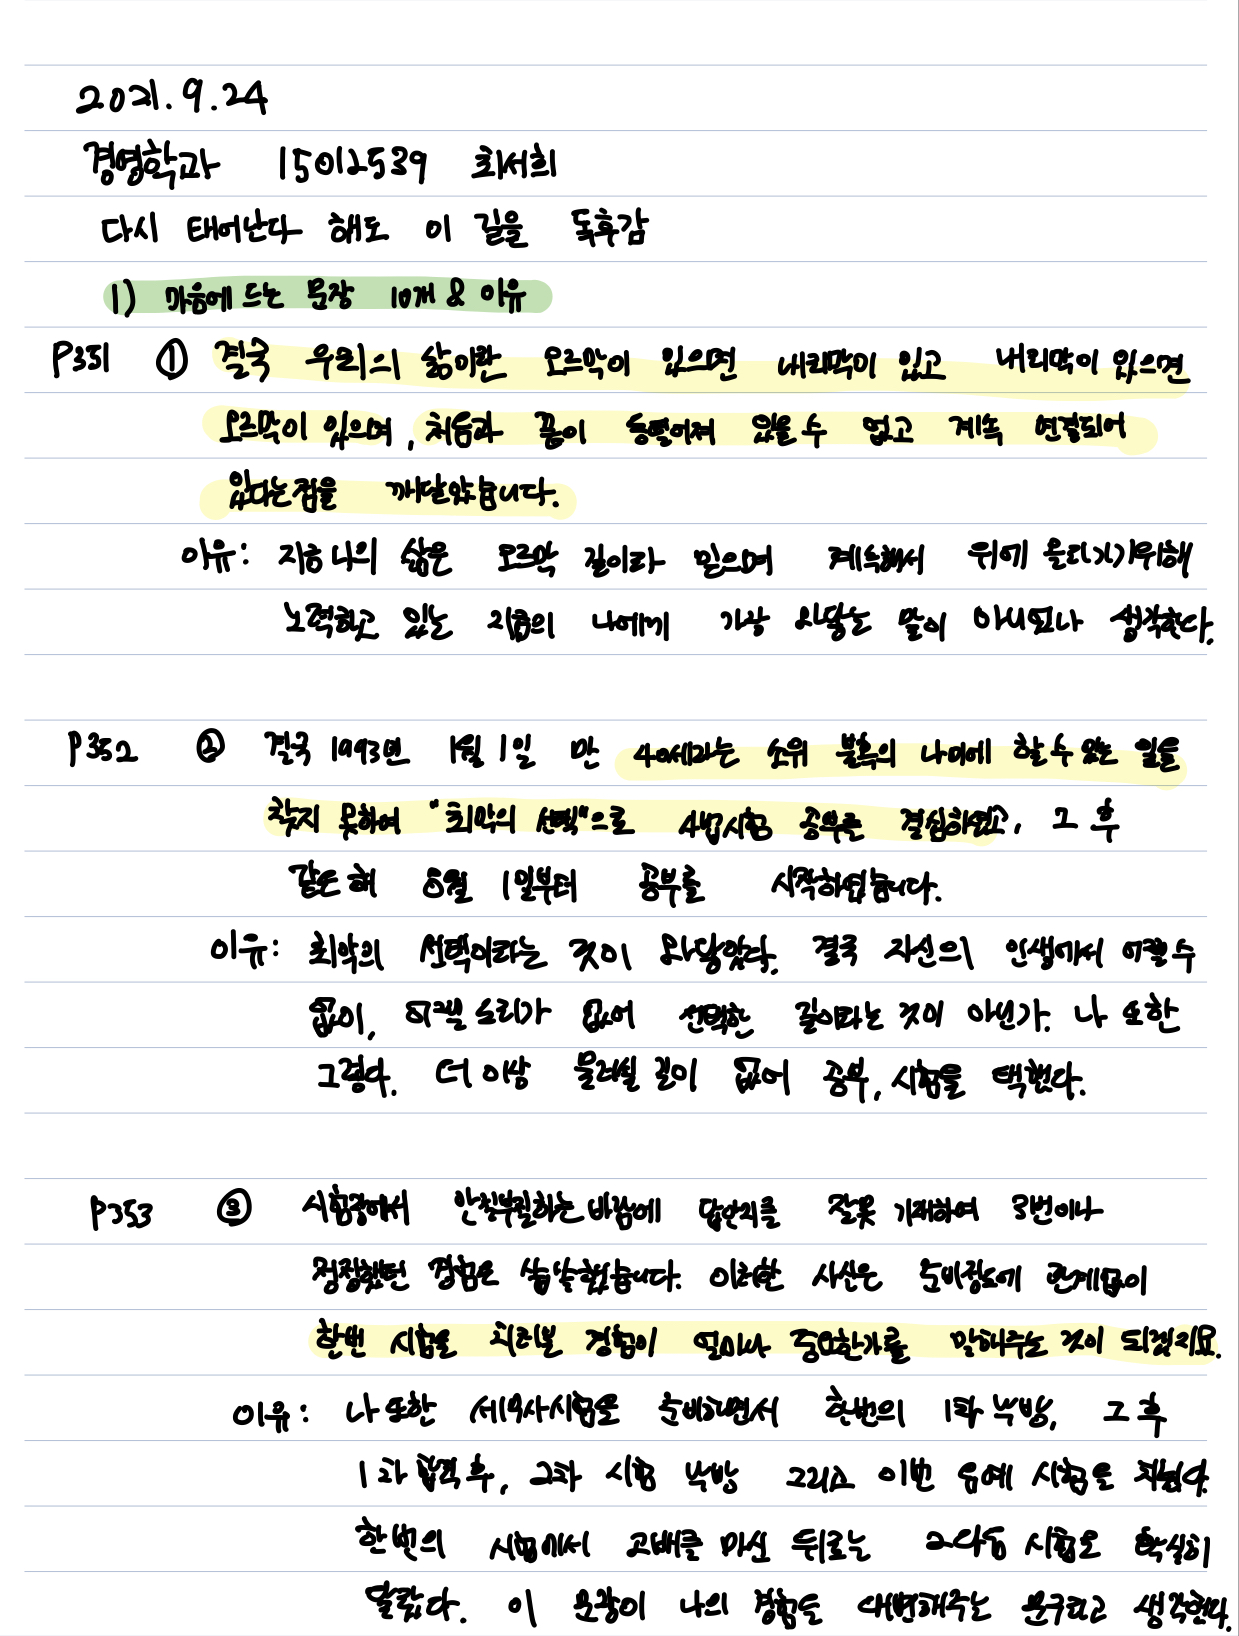 2021.9.24
경영학과 15012539 최서희
다시 태어난다 해도 이 길을 독후감
1) 마음에 드는 문장 10개 & 이유
P351 ① 결국 우리의 삶이란 오르막이 있으면 내리막이 있고 내리막이 있으면
오르막이 있으며, 처음과 끝이 동떨어져 있을 수 없고 계속 연결되어
있다는점을 깨달았습니다.
이유: 지금 나의 삶은 오르막 길이라 믿으며 계속해서 위에 올라가기위해
노력하고 있는 지금의 나에게 가장 와닿는 말이 아니었나 생각한다.
P352 ② 결국 1993년 1월 1일 만 40세라는 소위 불혹의 나이에 할 수 있는 일을
찾지 못하여 "최악의 선택"으로 사법시험 공부를 결심하였고, 그 후
같은 해 8월 1일부터 공부를 시작하였습니다.
이유: 최악의 선택이라는 것이 와닿았다. 결국 자신의 인생에서 어쩔 수
없이, 도리가 없어 선택한 길이라는 것이 아닌가. 나 또한
그렇다. 더 이상 물러설 길이 없어 공부, 시험을 택했다.
P353 ③ 시험장에서 안절부절하는 바람에 답안지를 잘못 기재하여 3번이나
정정했던 경험은 말했습니다. 이러한 사실은 준비정도에 관계없이
한번 시험을 치러본 경험이 얼마나 중요한가를 말해주는 것이 되겠지요.
이유: 나 또한 세무사시험을 준비하면서 한번의 1차 낙방, 그 후
1차 합격 후, 2차 시험 낙방 그리고 이번 유예 시험을 치뤘다.
한 번의 시험에서 고배를 마신 뒤로는 그다음 시험은 확실히
달랐다. 이 문장이 나의 경험을 대변해주는 문구라고 생각한다.